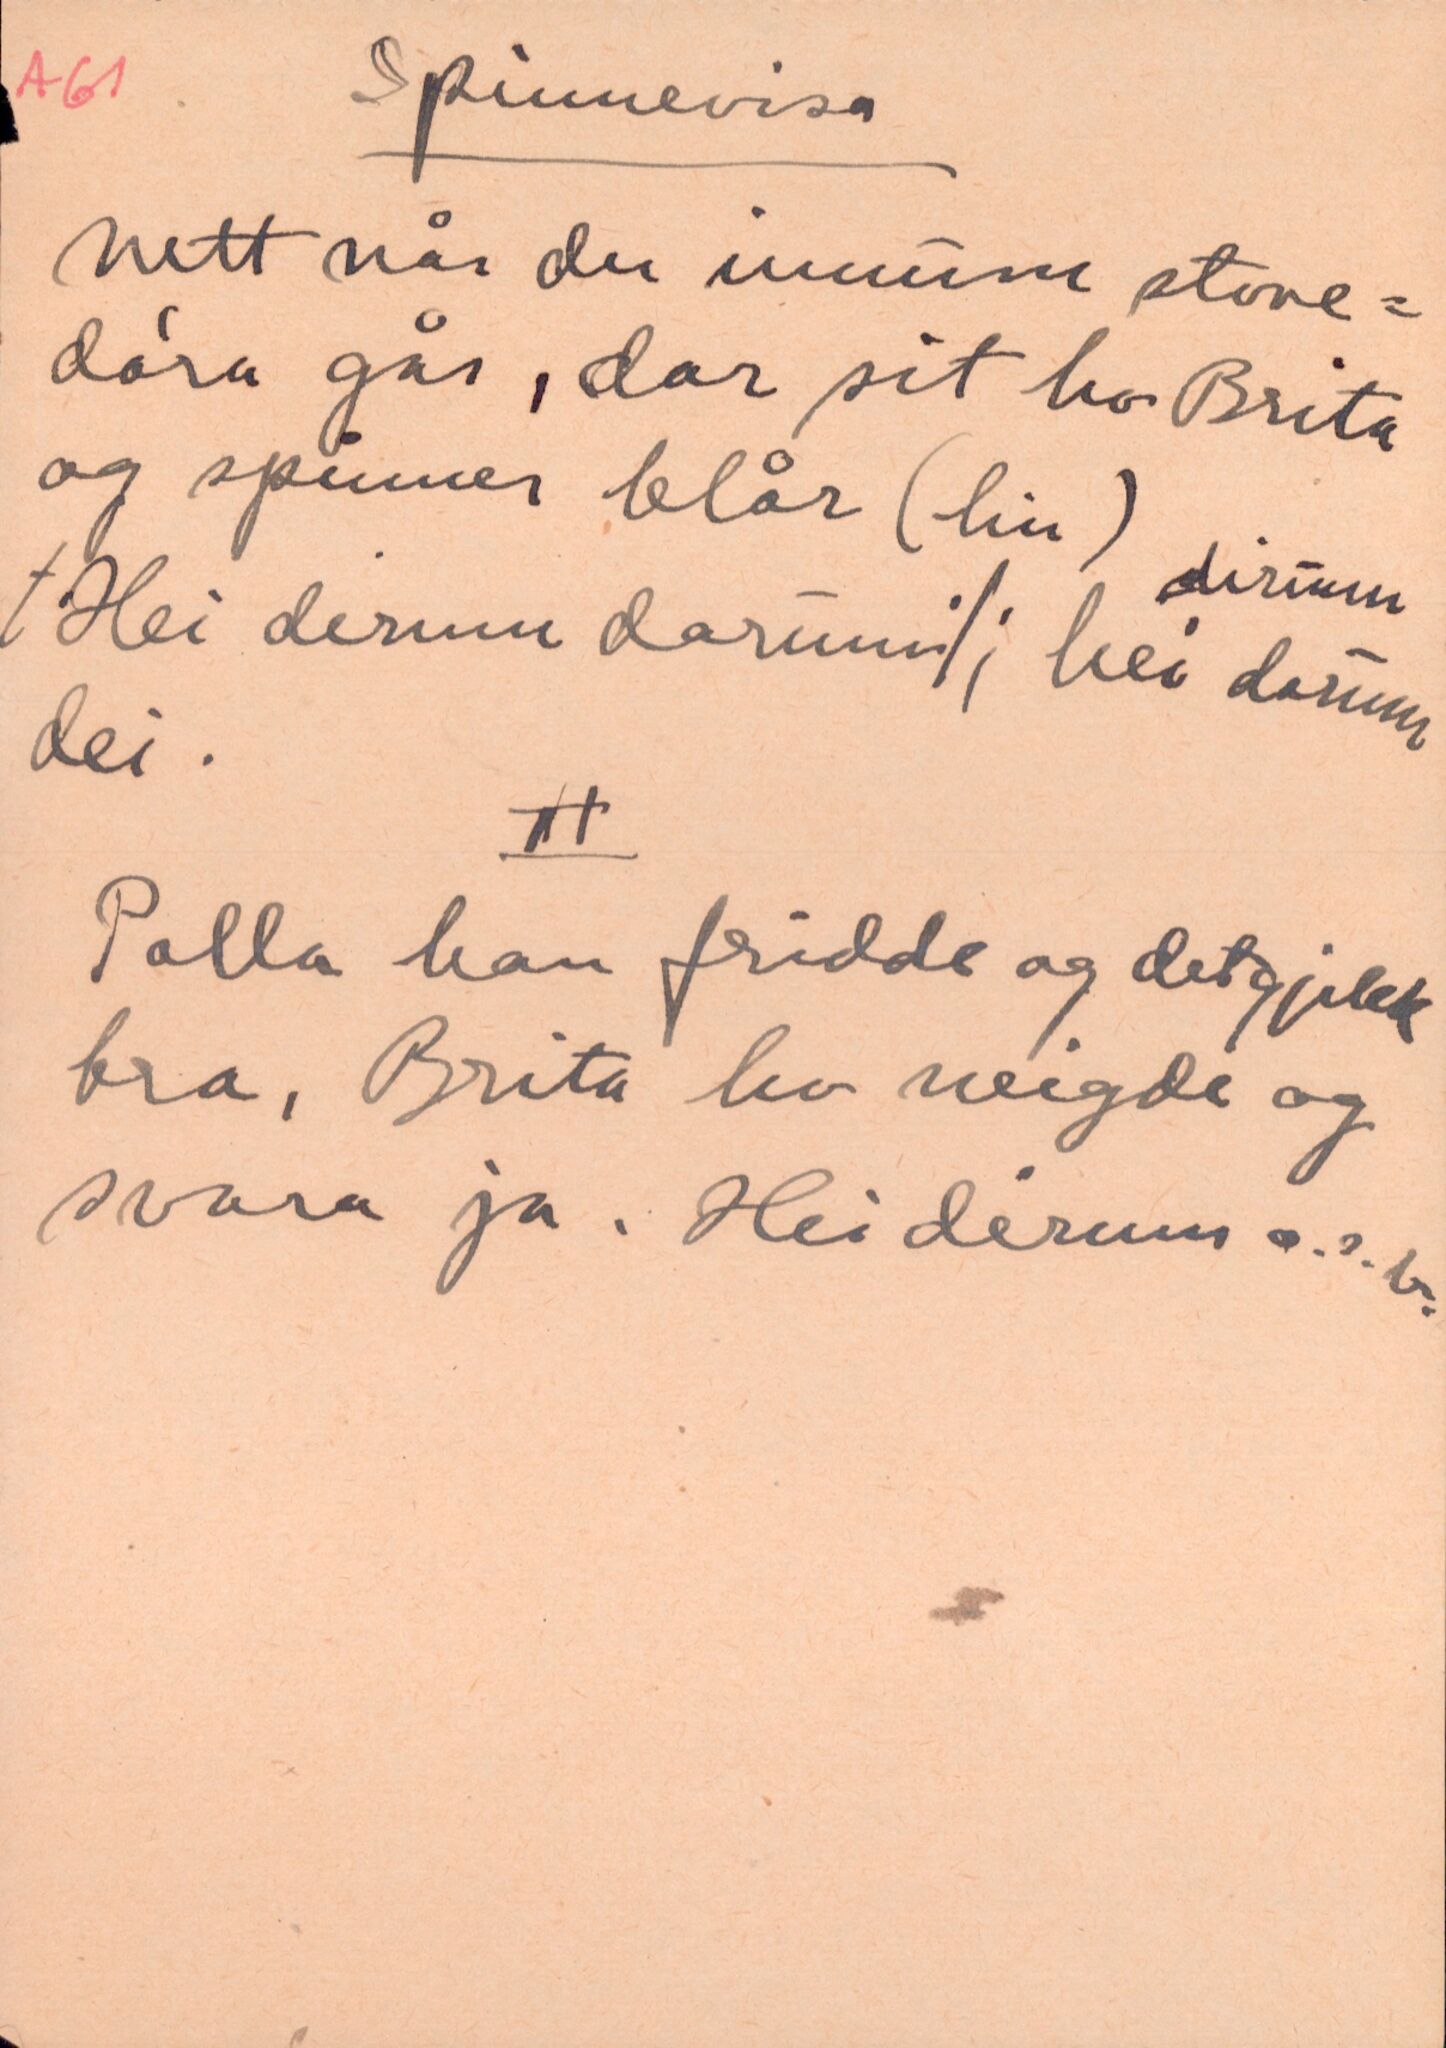 A61
Spinnevisa
Nett når du innum stove=
dóra går, dar sit ho Brita
og spinner blår (lin)
Hei dirum darum:/; hei dirum darum
dei.
II
Palla han fridde og det gjekk
bra, Brita ho neigde og
svara ja. Hei dirum o.s.b.